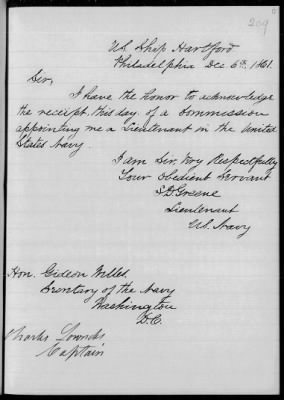 209
U.S. Ship Hartford
Philadelphia Dec 6th, 1861.
Sir,
I have the honor to acknowledge
the receipt, this day, of a Commission
appointing me a Lieutenant in the United
States Navy.
I am Sir, Very Respectfully
Your Obedient Servant
S.D. Greene
Lieutenant
U.S. Navy
Hon. Gideon Welles
Secretary of the Navy
Washington
D.C.
Charles Lowndes
Captain